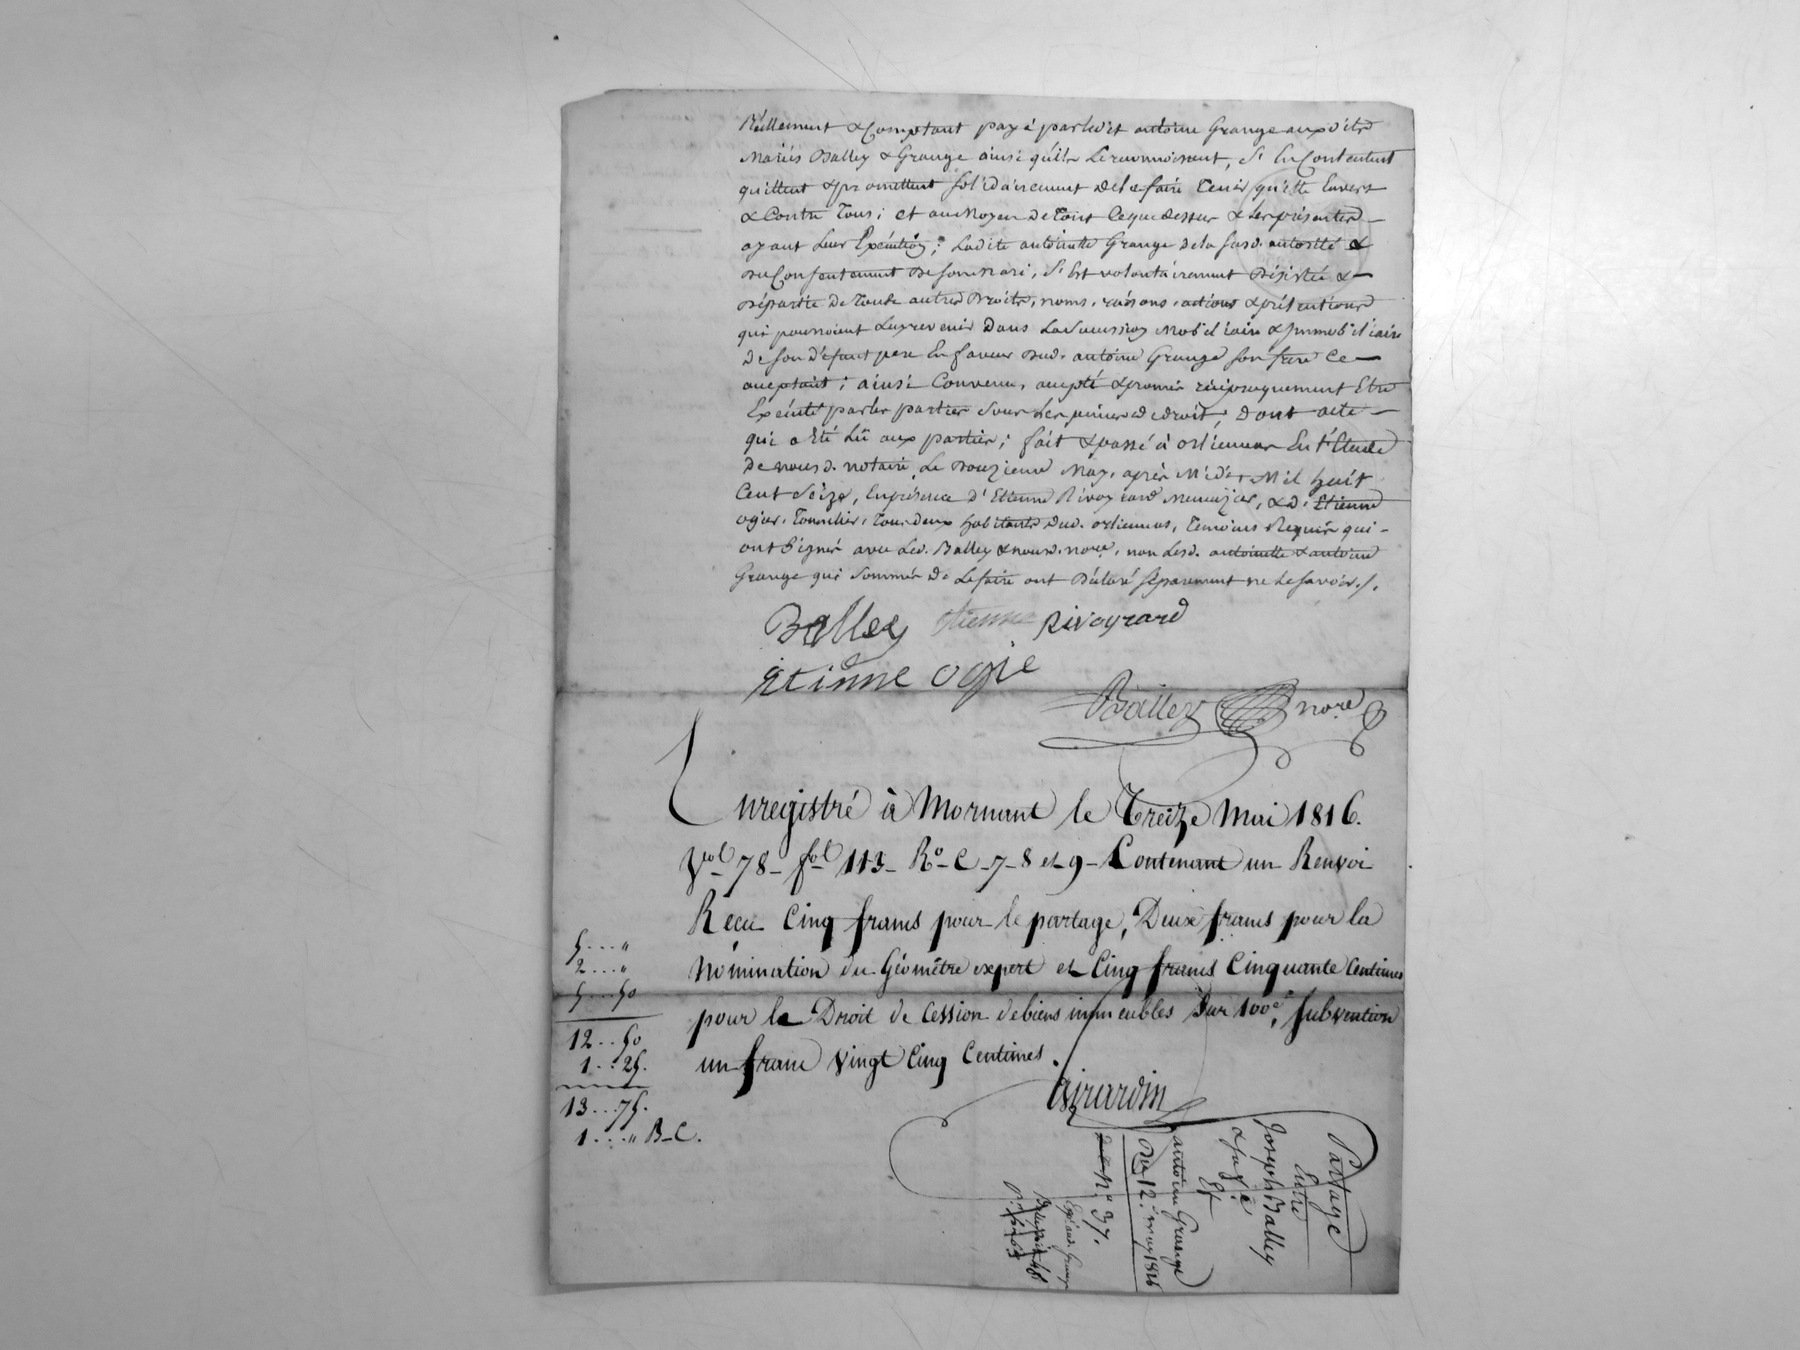 Réellement & Comptant payé par ledit antoine Grange auxdits
Mariés Balley & Grange ainsi qu'ils le reconnoissent, s'en Contentent
quittent & promettent solidairement de le faire tenir quitte Envers
& Contre Tous; et au Moyen de Tout Ceque dessus & les présentes
ayant leur Exécution; Ladite antoinette Grange de la susd. autorité &
du Consentement de son Mari, s'est volontairement Désistée &
Départie de Toute autres Droits, noms, raisons, actions & prétentions
qui pourroient luy revenir dans la Succession Mobiliaire & Immobiliaire
de son défunt pere En faveur dud. antoine Grange son frere Ce
acceptant; ainsi Convenu, accepté & promis réciproquement Etre
Exécuté par les parties sous les peines de droit; Dont acte
qui a Eté Lû aux parties; fait & passé à orlienas En l'Etude
de nousd. notaire, Le Douzieme May, après Midi, Mil huit
Cent Seize, En présence d'Etienne Rivoyrard Menuizier, & d'Etienne
ogier, Tonnelier, Tous deux habitants dud. orlienas, Témoins Requis qui
ont Signés avec Led. Balley & nousd. nore, non Lesd. antoinette & antoine
Grange qui Sommés de Le faire ont Déclaré séparement ne le savoir./.
Balley Etienne Rivoyrard
Etienne ogié
Balley nore
Enregistré à Mornant le Treize Mai 1816.
Vol 78 - fol 113 - Ro - C - 7 - 8 et 9 - Contenant un Renvoi
Reçu Cinq francs pour le partage, Deux francs pour la
Nomination du Géomêtre expert et Cinq francs Cinquante Centimes
pour le Droit de Cession de biens immeubles Sur 100e, Subvention
un franc Vingt Cinq Centimes.
Girardin
5 . . . "
2 . . . "
5 . . . 50
12 . . 50
1 . . 25.
13 . . . 75.
1 . . . " B - C.
Partage
Entre
Joseph Balley
& sa fe
Et
antoine Grange
Du 12. may 1816
No. 37.